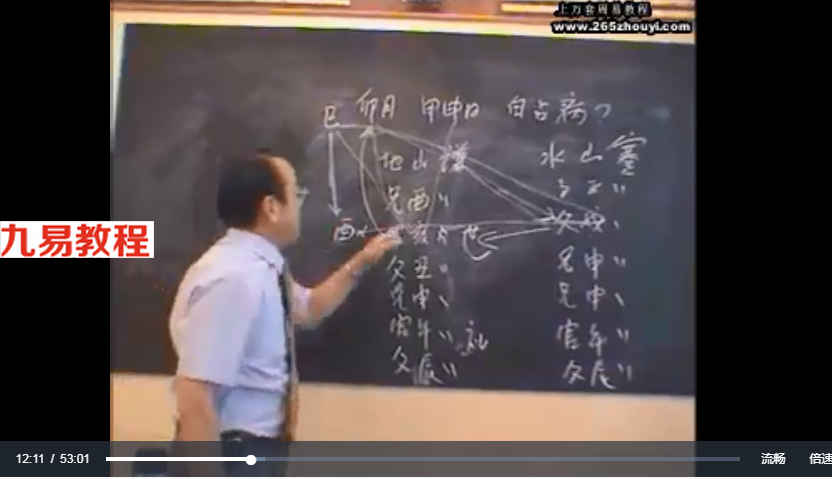 上万套周易教程
www.265zhouyi.com
巳 卯月 甲申日 自占病
地山謙 水山蹇
兄酉 子子
酉 亥 世 父戌
父丑 兄申
兄申 兄申
官午 官午
父辰 父辰
九易教程
12:11 / 53:01 流畅 倍速